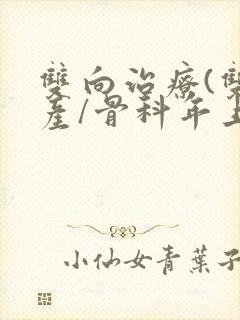 雙向治療(雙
產/骨科年上
小仙女青葉子